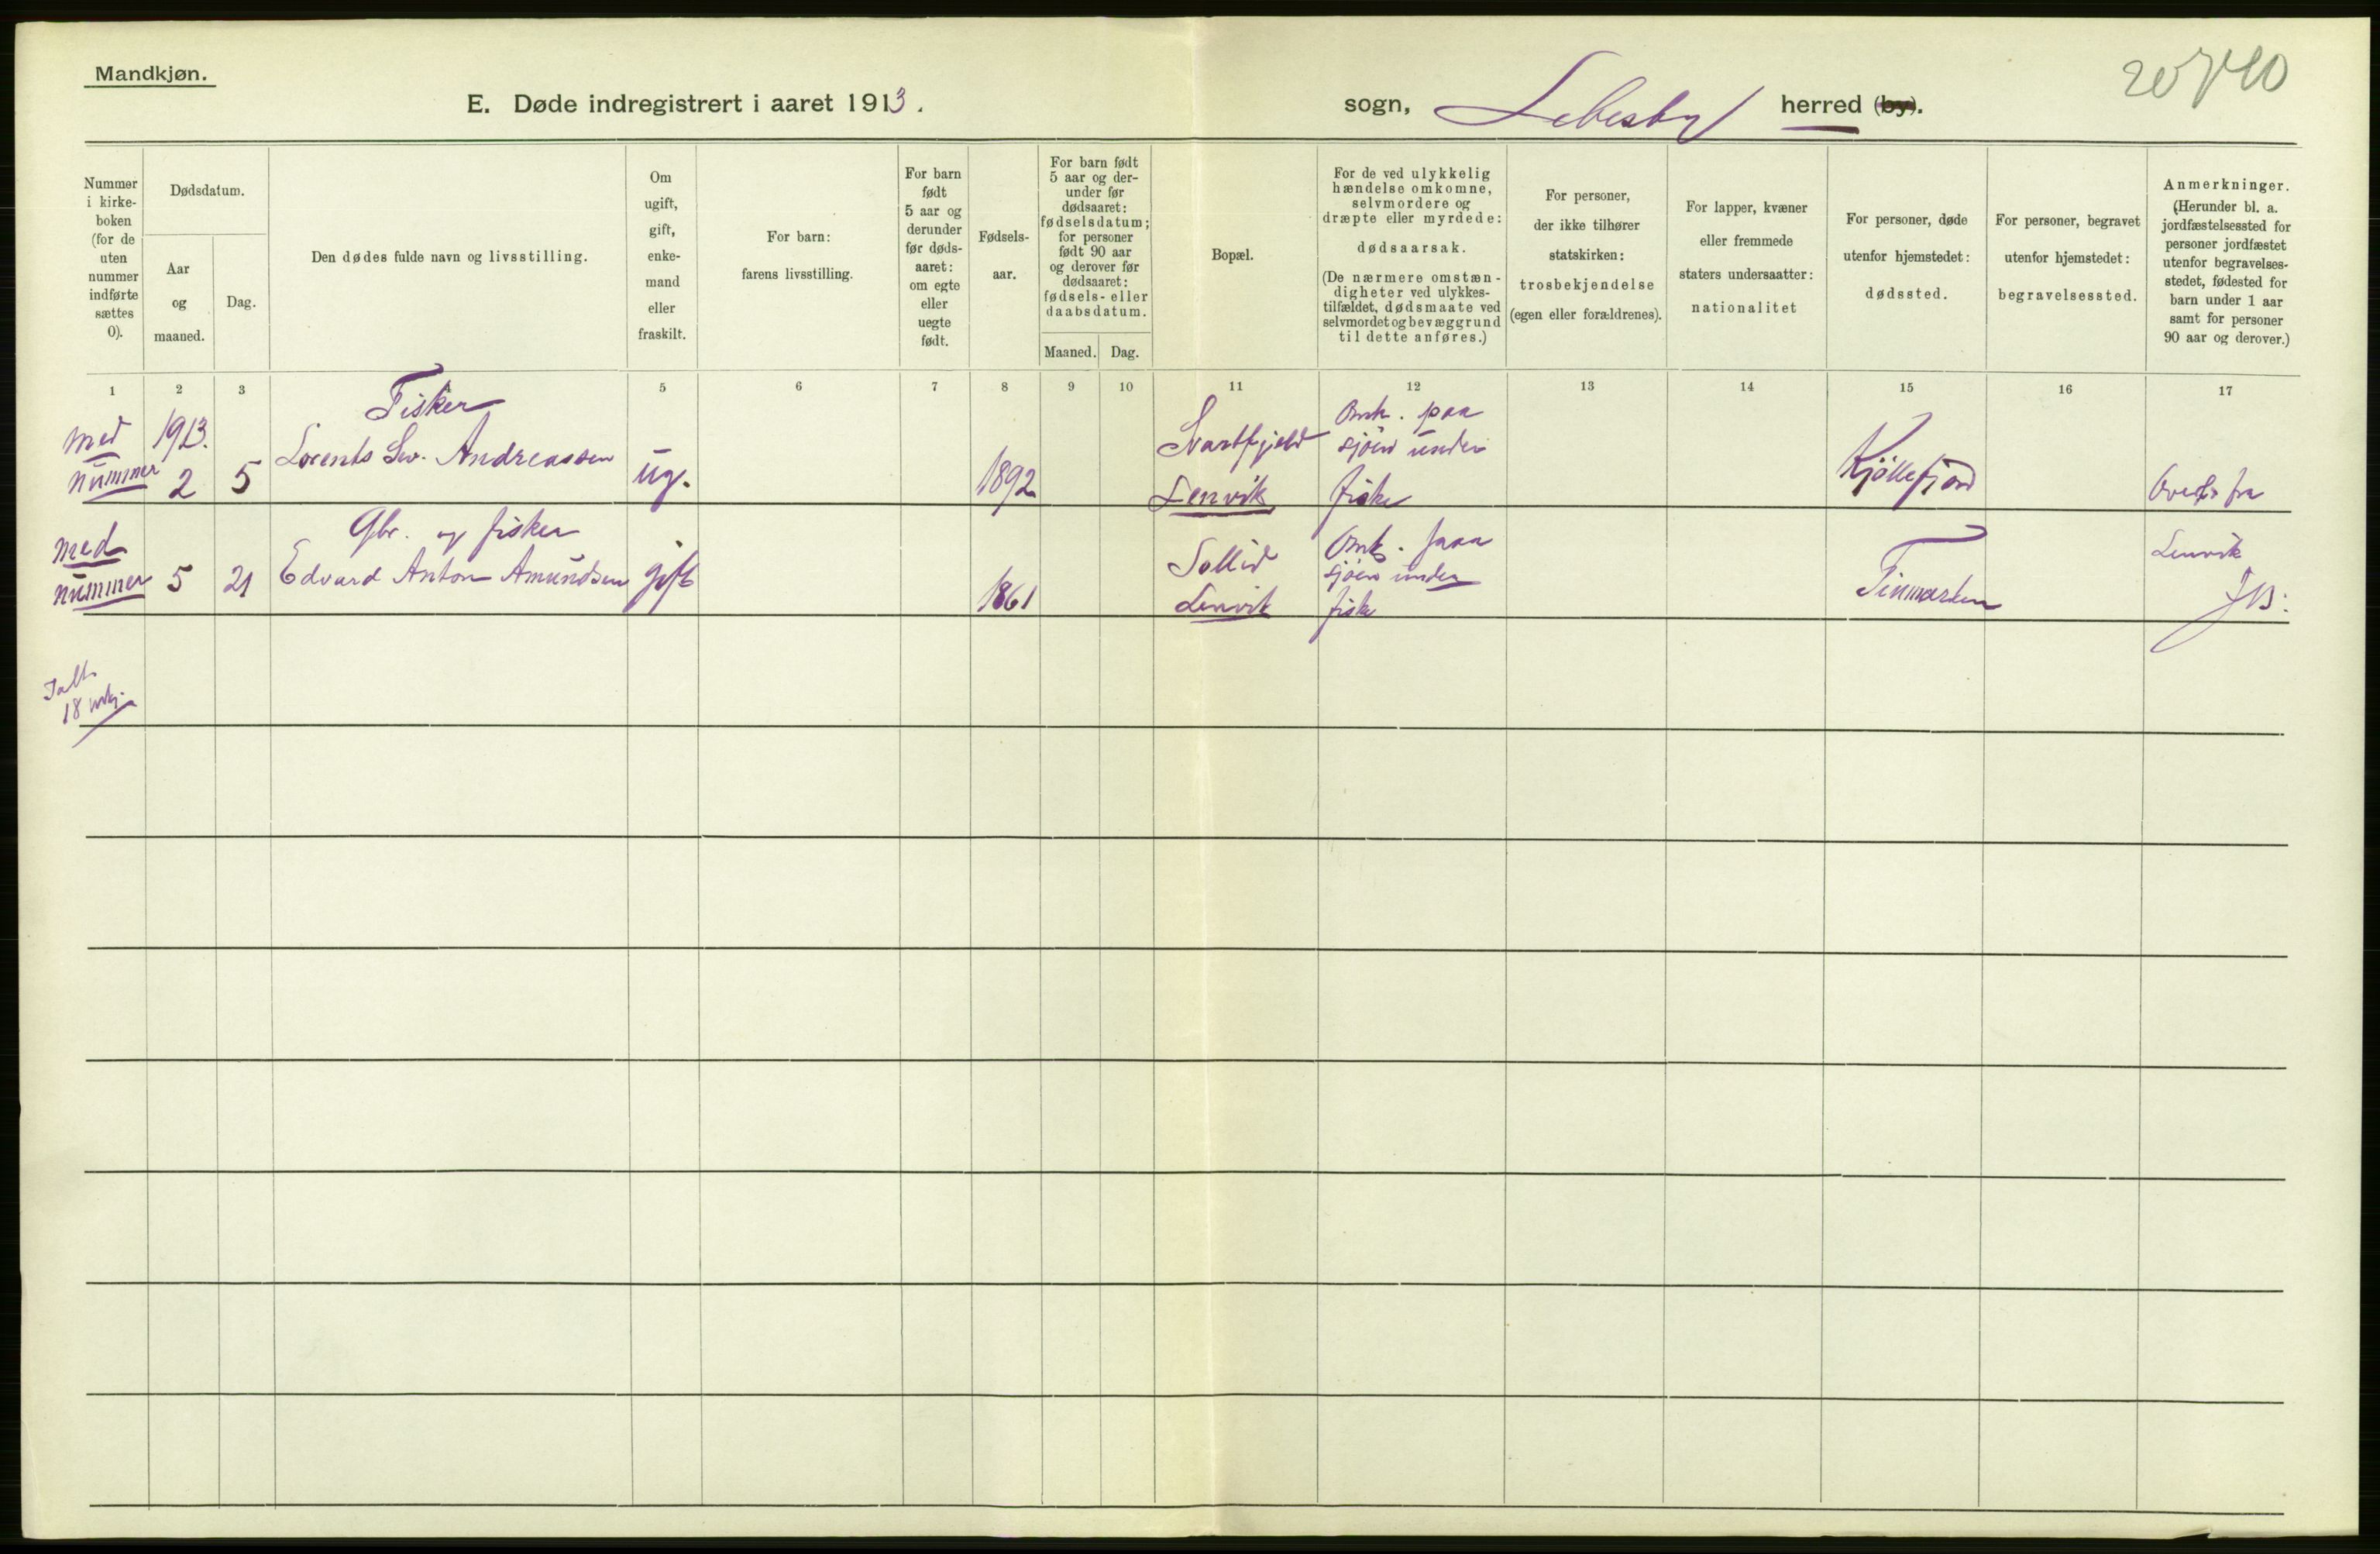 Mandkjøn.
E. Døde indregistrert i aaret 1913.
sogn, Lebesby herred (by).
Nummer
i kirke-
boken
(for de
uten
nummer
indførte
sættes
0).
Dødsdatum.
Aar
og
maaned.
Dag.
Den dødes fulde navn og livsstilling.
Om
ugift,
gift,
enke-
mand
eller
fraskilt.
For barn:
farens livsstilling.
For barn
født
5 aar og
derunder
før døds-
aaret:
om egte
eller
uegte
født.
Fødsels-
aar.
For barn født
5 aar og der-
under før
dødsaaret:
fødselsdatum;
for personer
født 90 aar
og derover før
dødsaaret:
fødsels- eller
daabsdatum.
Maaned. Dag.
Bopæl.
For de ved ulykkelig
hændelse omkomne,
selvmordere og
dræpte eller myrdede:
dødsaarsak.
(De nærmere omstæn-
digheter ved ulykkes-
tilfældet, dødsmaate ved
selvmordet og bevæggrund
til dette anføres.)
For personer,
der ikke tilhører
statskirken:
trosbekjendelse
(egen eller forældrenes).
For lapper, kvæner
eller fremmede
staters undersaatter:
nationalitet
For personer, døde
utenfor hjemstedet:
dødssted.
For personer, begravet
utenfor hjemstedet:
begravelsessted.
Anmerkninger.
(Herunder bl. a.
jordfæstelsessted for
personer jordfæstet
utenfor begravelses-
stedet, fødested for
barn under 1 aar
samt for personer
90 aar og derover.)
1 2 3 5 6 7 8 9 10 11 12 13 14 15 16 17
med
nummer
1913.
2 5
Fisker
Lorents Andreassen
ug.
1892
Svartfjeld
Lenvik
Omk. paa
sjöen under
fiske
Kjöllefjord
Overf. fra
med
nummer
5 21
Gbr. og fisker
Edvard Anton Amundsen
gift
1861
Sollid
Lenvik
Omk. paa
sjöen under
fiske
Finmarken
Lenvik
JB.
Ialt
18 mkj.